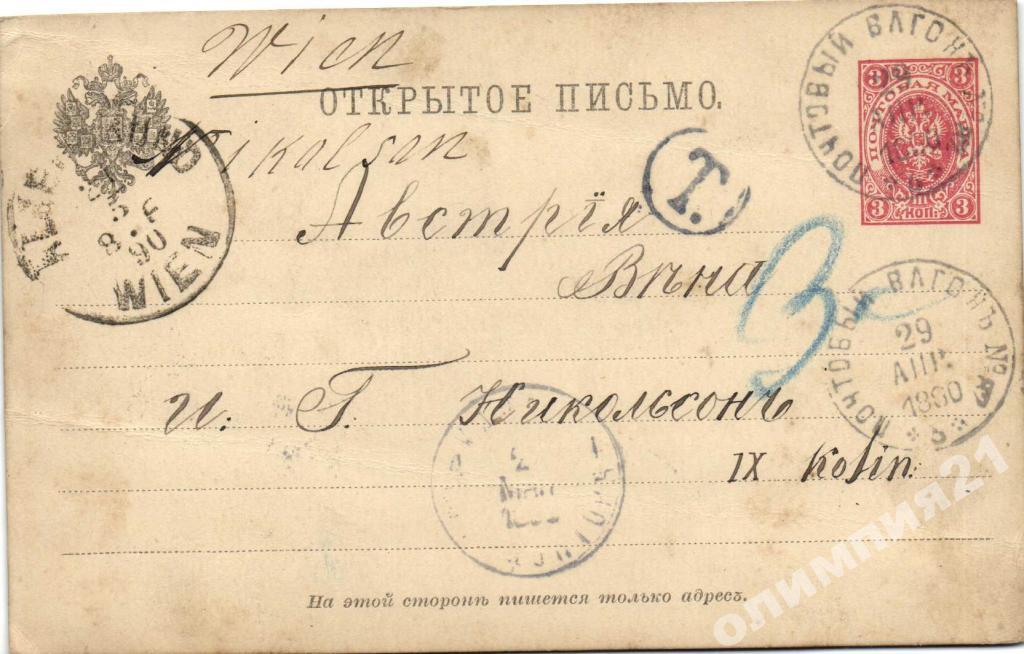 Wien
ОТКРЫТОЕ ПИСЬМО.
Nikolson
ПОЧТОВЫЙ ВАГОНЪ
3 3
ПОЧТОВАЯ МАРКА
3 КОП. 3
T.
Австрія
Вѣна
WIEN
90
3
ПОЧТОВЫЙ ВАГОНЪ №
29
АПР.
1890
И. Г. Никольсонъ
2
IX Kolin.
На этой сторонѣ пишется только адресъ.
олимпия21